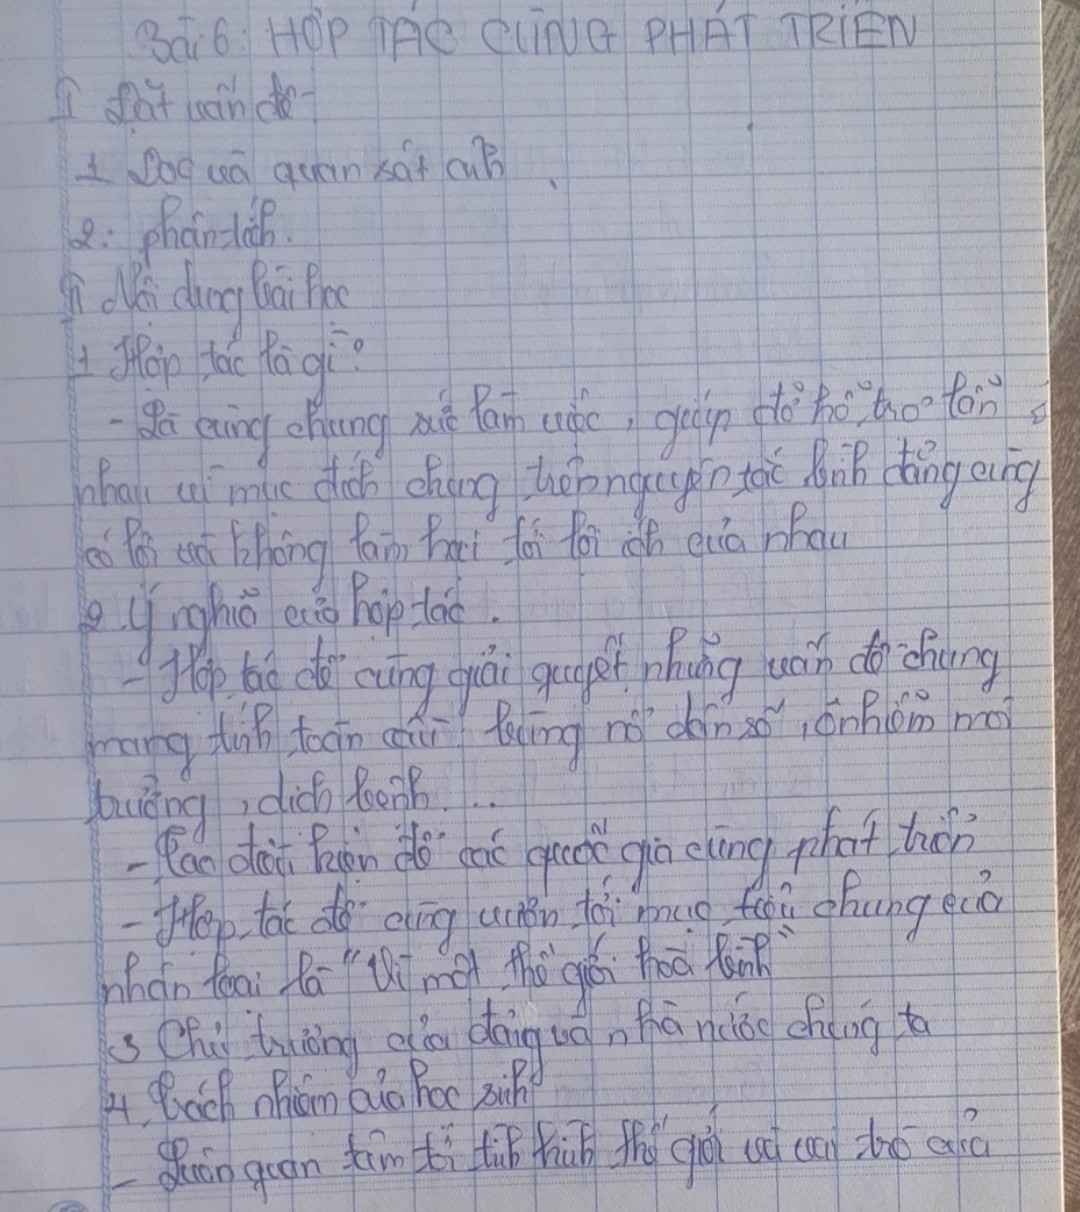 Bài 6: HỢP TÁC CÙNG PHÁT TRIỂN
I Đặt vấn đề
1 Đọc và quan sát ảnh
2. phân tích.
II Nội dung bài học
1 Hợp tác là gì?
- Là cùng chung sức làm việc, giúp đỡ hỗ trợ lẫn
nhau vì mục đích chung trên nguyên tắc bình đẳng cùng
có lợi và không làm hại tới lợi ích của nhau
2. Ý nghĩa của hợp tác.
- Hợp tác để cùng giải quyết những vấn đề chung
mang tính toàn cầu bùng nổ dân số, ô nhiễm môi
trường, dịch bệnh...
- Tạo điều kiện để các quốc gia cùng phát triển
- Hợp tác để cùng vươn tới mục tiêu chung của
nhân loại là "Vì một thế giới hoà bình"
3 Chủ trương của đảng và nhà nước chúng ta
4. Trách nhiệm của học sinh
- Luôn quan tâm tới tình hình thế giới và vai trò của